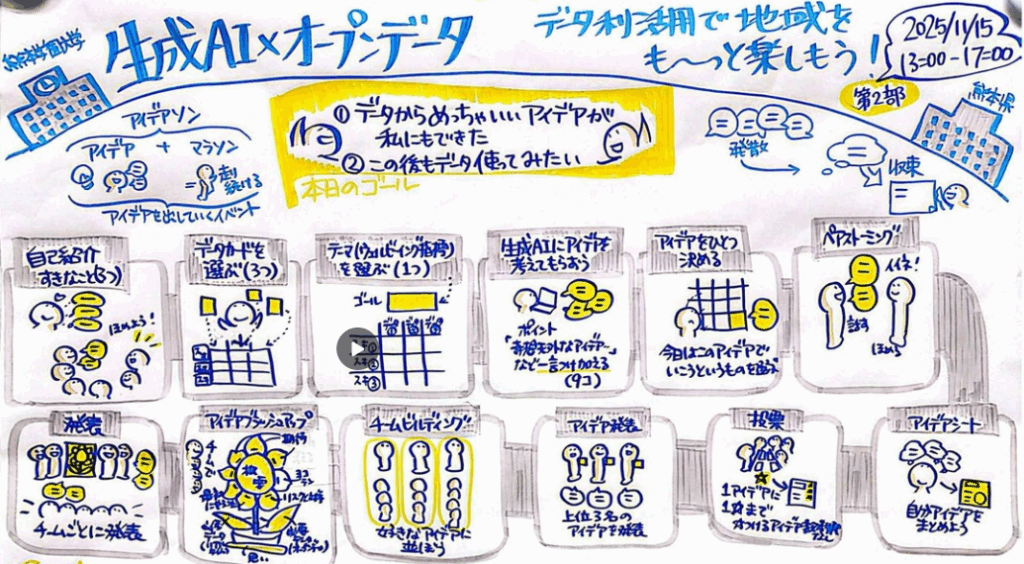 熊本学園大学
生成AI×オープンデータ
データ利活用で地域を
も〜っと楽しもう!
2025/11/15
13:00-17:00
第2部
熊本県
アイデアソン
アイデア + マラソン
=走り
続ける
アイデアを出していくイベント
①データからめっちゃいいアイデアが
私にもできた
②この後もデータ使ってみたい
本日のゴール
発散
収束
自己紹介
すきなこと(3つ)
ほめよう!
データカードを
選ぶ(3つ)
テーマ(ウェルビーイング指標)
を選ぶ(1つ)
ゴール
スキ①
スキ②
スキ③
生成AIにアイデアを
考えてもらおう
ポイント
「奇想天外なアイデア」
など一言つけ加える
(9コ)
アイデアをひとつ
決める
今日はこのアイデアで
いこうというものを選ぶ
ペアストーミング
イイネ!
話す
ほめる
発表
チームごとに発表
アイデアブラッシュアップ
チームで
期待
チームビルディング
好きなアイデアに
並ぼう
アイデア発表
上位3名の
アイデアを発表
投票
1アイデアに
1分まで
アイデアシート
自分アイデアを
まとめよう